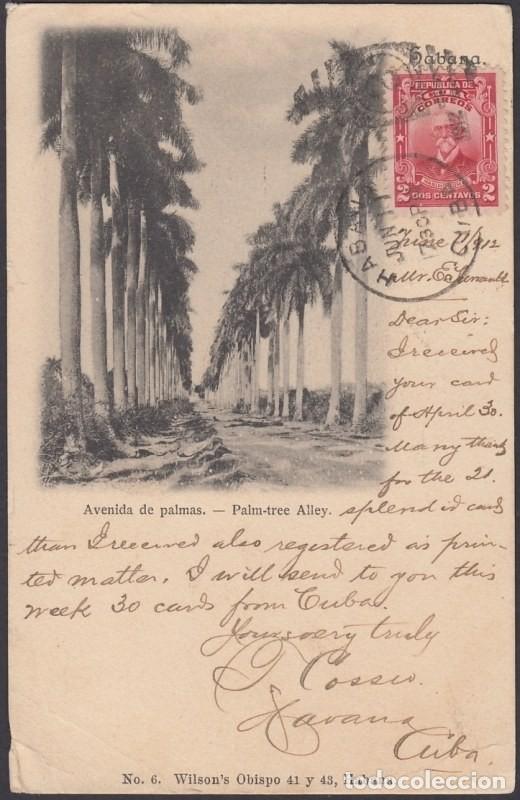 Habana.
REPUBLICA DE
CUBA
CORREOS
2 2
DOS CENTAVOS
HABANA
JUN 11
CUBA
June 11/912
Mr.
Dear Sir:
I received
your card
of April 30.
Many thanks
for the 21
Avenida de palmas. — Palm-tree Alley.
splendid cards
than I received also registered as prin-
ted matter. I will send to you this
week 30 cards from Cuba.
Yours very truly
Cossio.
Havana
Cuba.
No. 6. Wilson's Obispo 41 y 43, Habana.
todocoleccion